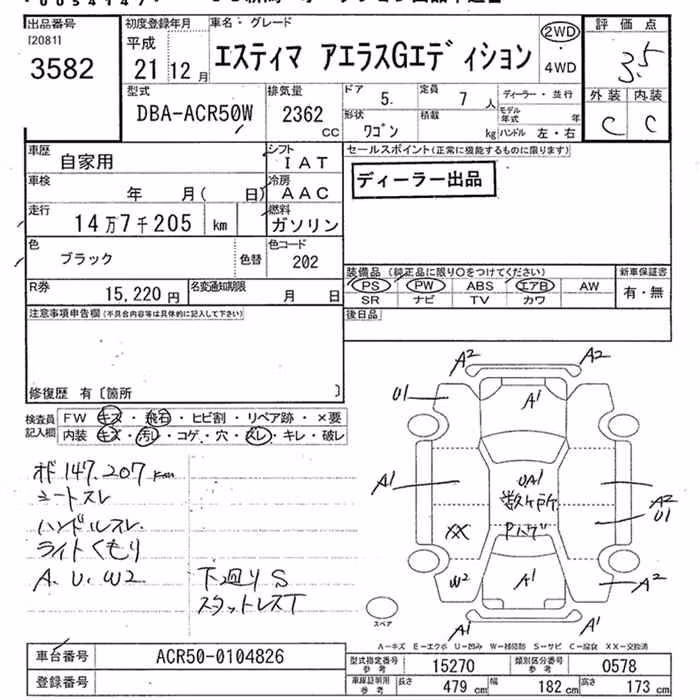 出品番号 初度登録年月 車名・グレード 評価点
[20811] 平成
3582 21 12月 エスティマ アエラスGエディション 2WD・4WD 3.5
型式 排気量 ドア 5. 定員 7人 ディーラー・並行 外装 内装
DBA-ACR50W 2362 CC 形状 ワゴン 積載 kg モデル年式 年 ハンドル 左・右 C C
車歴 自家用 シフト IAT セールスポイント(正常に機能するものに限ります)
車検 年 月( 日) 冷房 AAC ディーラー出品
走行 14万7千205 km 燃料 ガソリン
色 ブラック 色替 色コード 202
装備品(純正品に限り○をつけてください) 新車保証書
R券 15,220円 名変通知期限 月 日 PS PW ABS エアB AW 有・無
SR ナビ TV カワ
注意事項申告欄(不具合内容等は具体的に記入して下さい) 後日品
修復歴 有〔箇所 〕
検査員記入欄 FW キズ・飛石・ヒビ割・リペア跡・×要
内装 キズ・汚レ・コゲ・穴・スレ・キレ・破レ
オド147.207km
シートスレ
ハンドルスレ
ライトくもり
A.U.W2 下廻りS
スタットレスT
A2 A2
U1 A1
A1 UA1 数ヶ所 A2 U1
XX Pハゲ
W2 A1 A2
A1 A1
スペア
A-キズ E-エクボ U-凹み W-補修跡 S-サビ C-腐食 XX-交換済
車台番号 ACR50-0104826 型式指定番号 参考 15270 類別区分番号 参考 0578
登録番号 車庫証明用 参考 長さ 479cm 幅 182cm 高さ 173cm